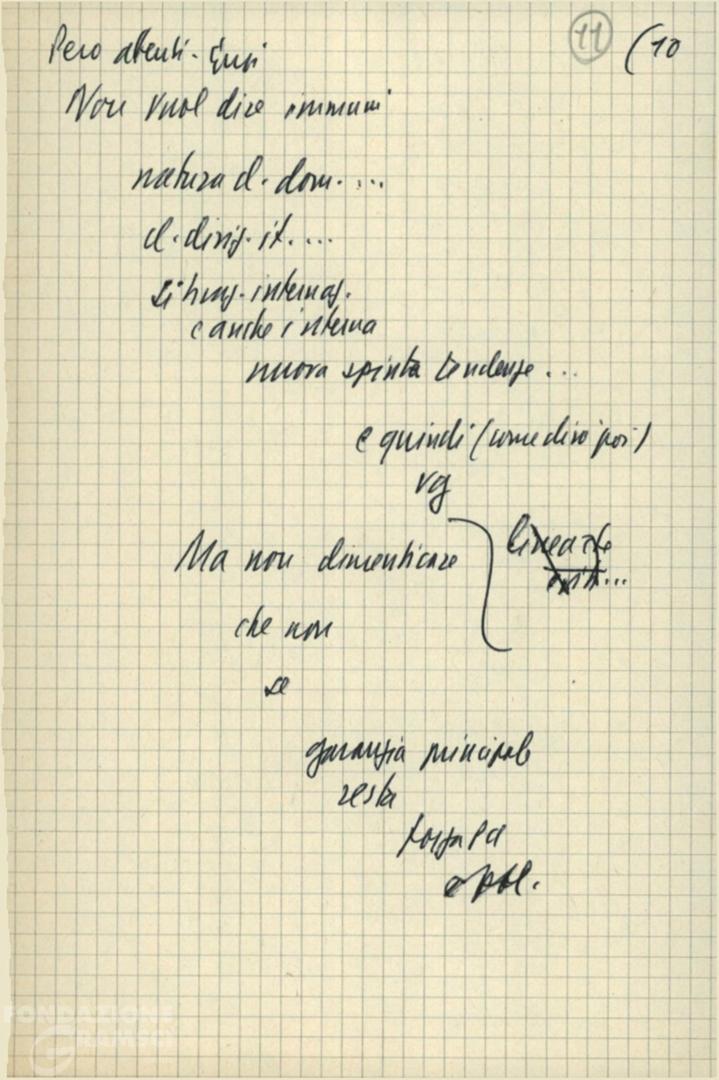 11 (10
Pero attenti -
Non vuol dire immuni
natura d. dom. ...
d. dirig. it. ...
internaz.
e anche interna
nuova spinta tendenze ...
e quindi (come dirò poi)
vg
Ma non dimenticare
che non
se
garanzia principale
resta
forza Pd
e pol.
FONDAZIONE
GRAMSCI